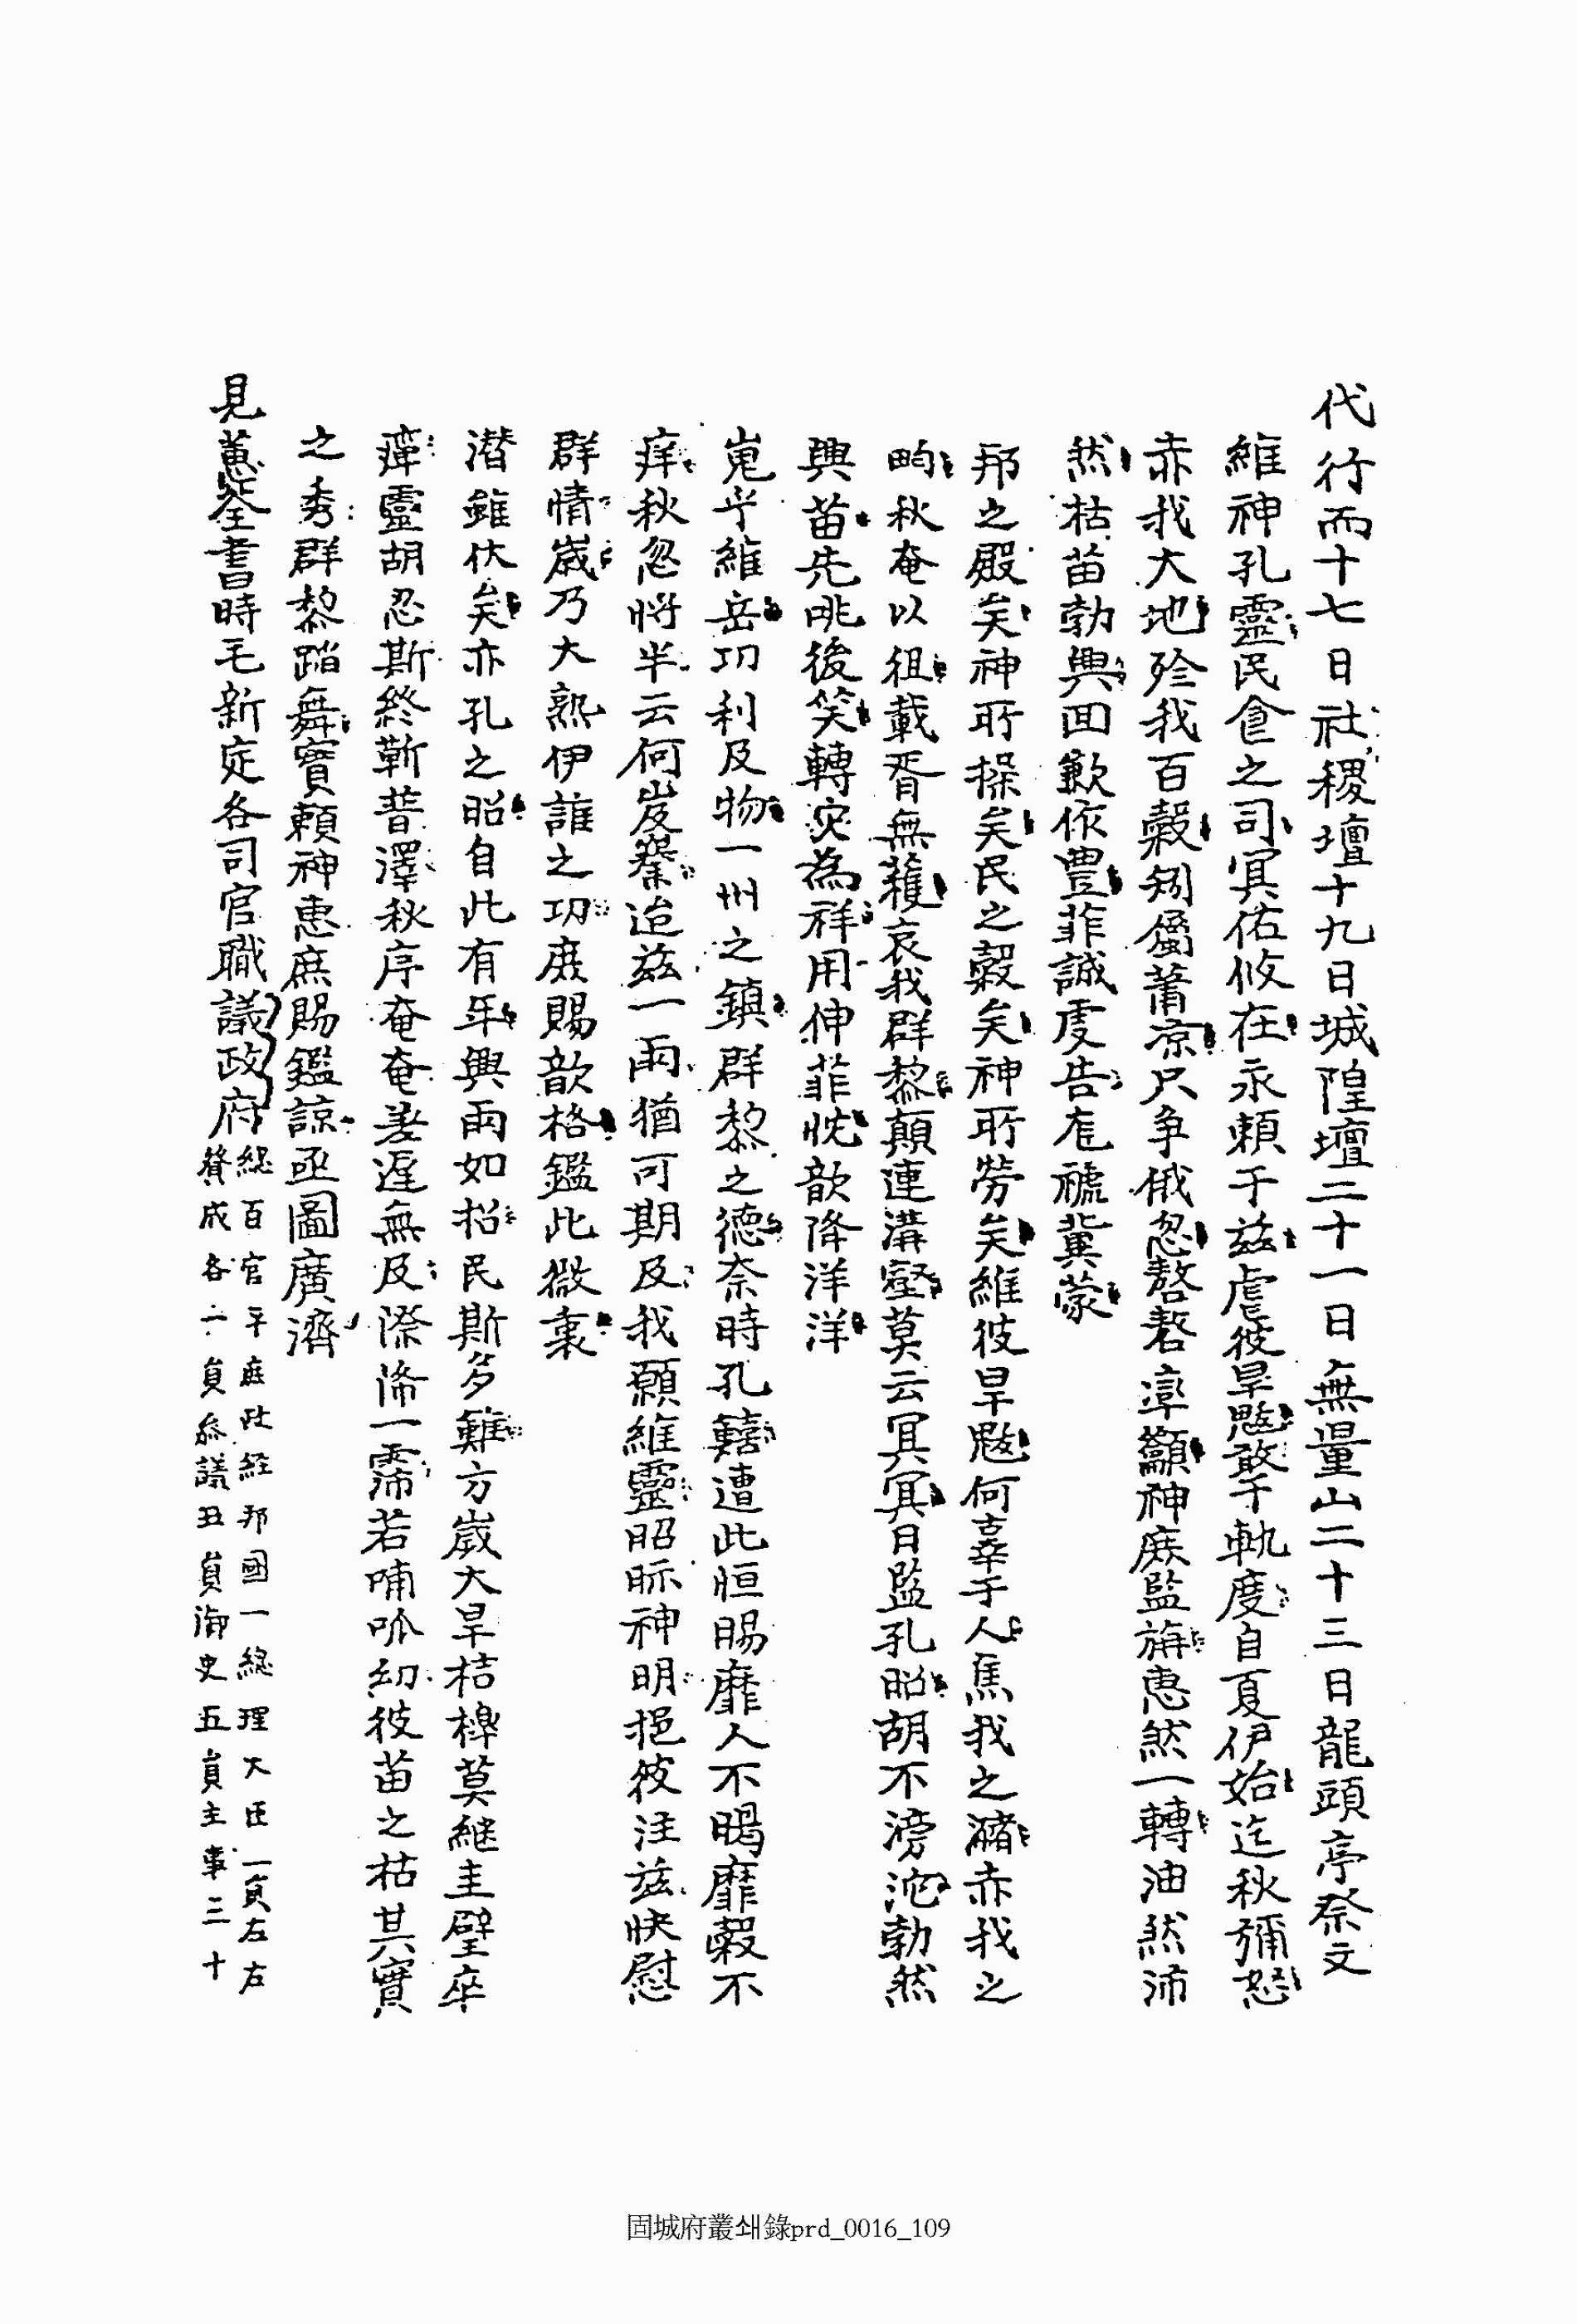 代行而十七日社稷壇十九日城隍壇二十一日無量山二十三日龍頭亭祭文
維神孔靈民食之司冥佑攸在永賴于玆虐彼旱魃敢干軌度自夏伊始迄秋彌怒
赤我大地殄我百穀矧屬莆凉尺爭俄忽嗸嗸率籲神庶監旃惠然一轉油然沛
然枯苗勃興回歉依豊菲誠虔告庬禠冀蒙
邦之殿矣神所操矣民之穀矣神所勞矣維彼旱魃何辜于人焦我之瀦赤我之
畇秋奄以徂載胥無蓷哀我群黎顚連溝壑莫云冥冥日監孔昭胡不滂沱勃然
興苗先咷後笑轉灾爲祥用伸菲忱歆降洋洋
嵬乎維岳功利及物一州之鎭群黎之德奈時孔囏遭此恒暘靡人不暍靡穀不
痒秋忽將半云何岌檠迨玆一雨猶可期及我願維靈昭眎神明挹彼注玆快慰
群情歲乃大熟伊誰之功庶賜歆格鑑此微衷
潛雖伏矣亦孔之昭自此有年興雨如招民斯多難方歲大旱桔槹莫継圭璧卒
癉靈胡忍斯終靳普澤秋序奄奄差遲無及際渧一霈若哺吩幻彼苗之枯其實
之秀群黎蹈舞寶賴神惠庶賜鑑諒亟圖廣濟
見蕙筌書時毛新定各司官職議政府
總百官平庶政経邦國一總理大臣一員左右
贊成各一員叅議五員海史五員主事三十